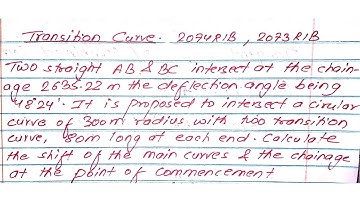 Transition Curve. 2074 R1B, 2073 R1B
Two straight AB & BC intersect at the chain-
age 2635.22 m the deflection angle being
48°24'. It is proposed to intersect a circular
curve of 300m radius with two transition
curve, 80m long at each end. Calculate
the shift of the main curves & the chainage
at the point of commencement